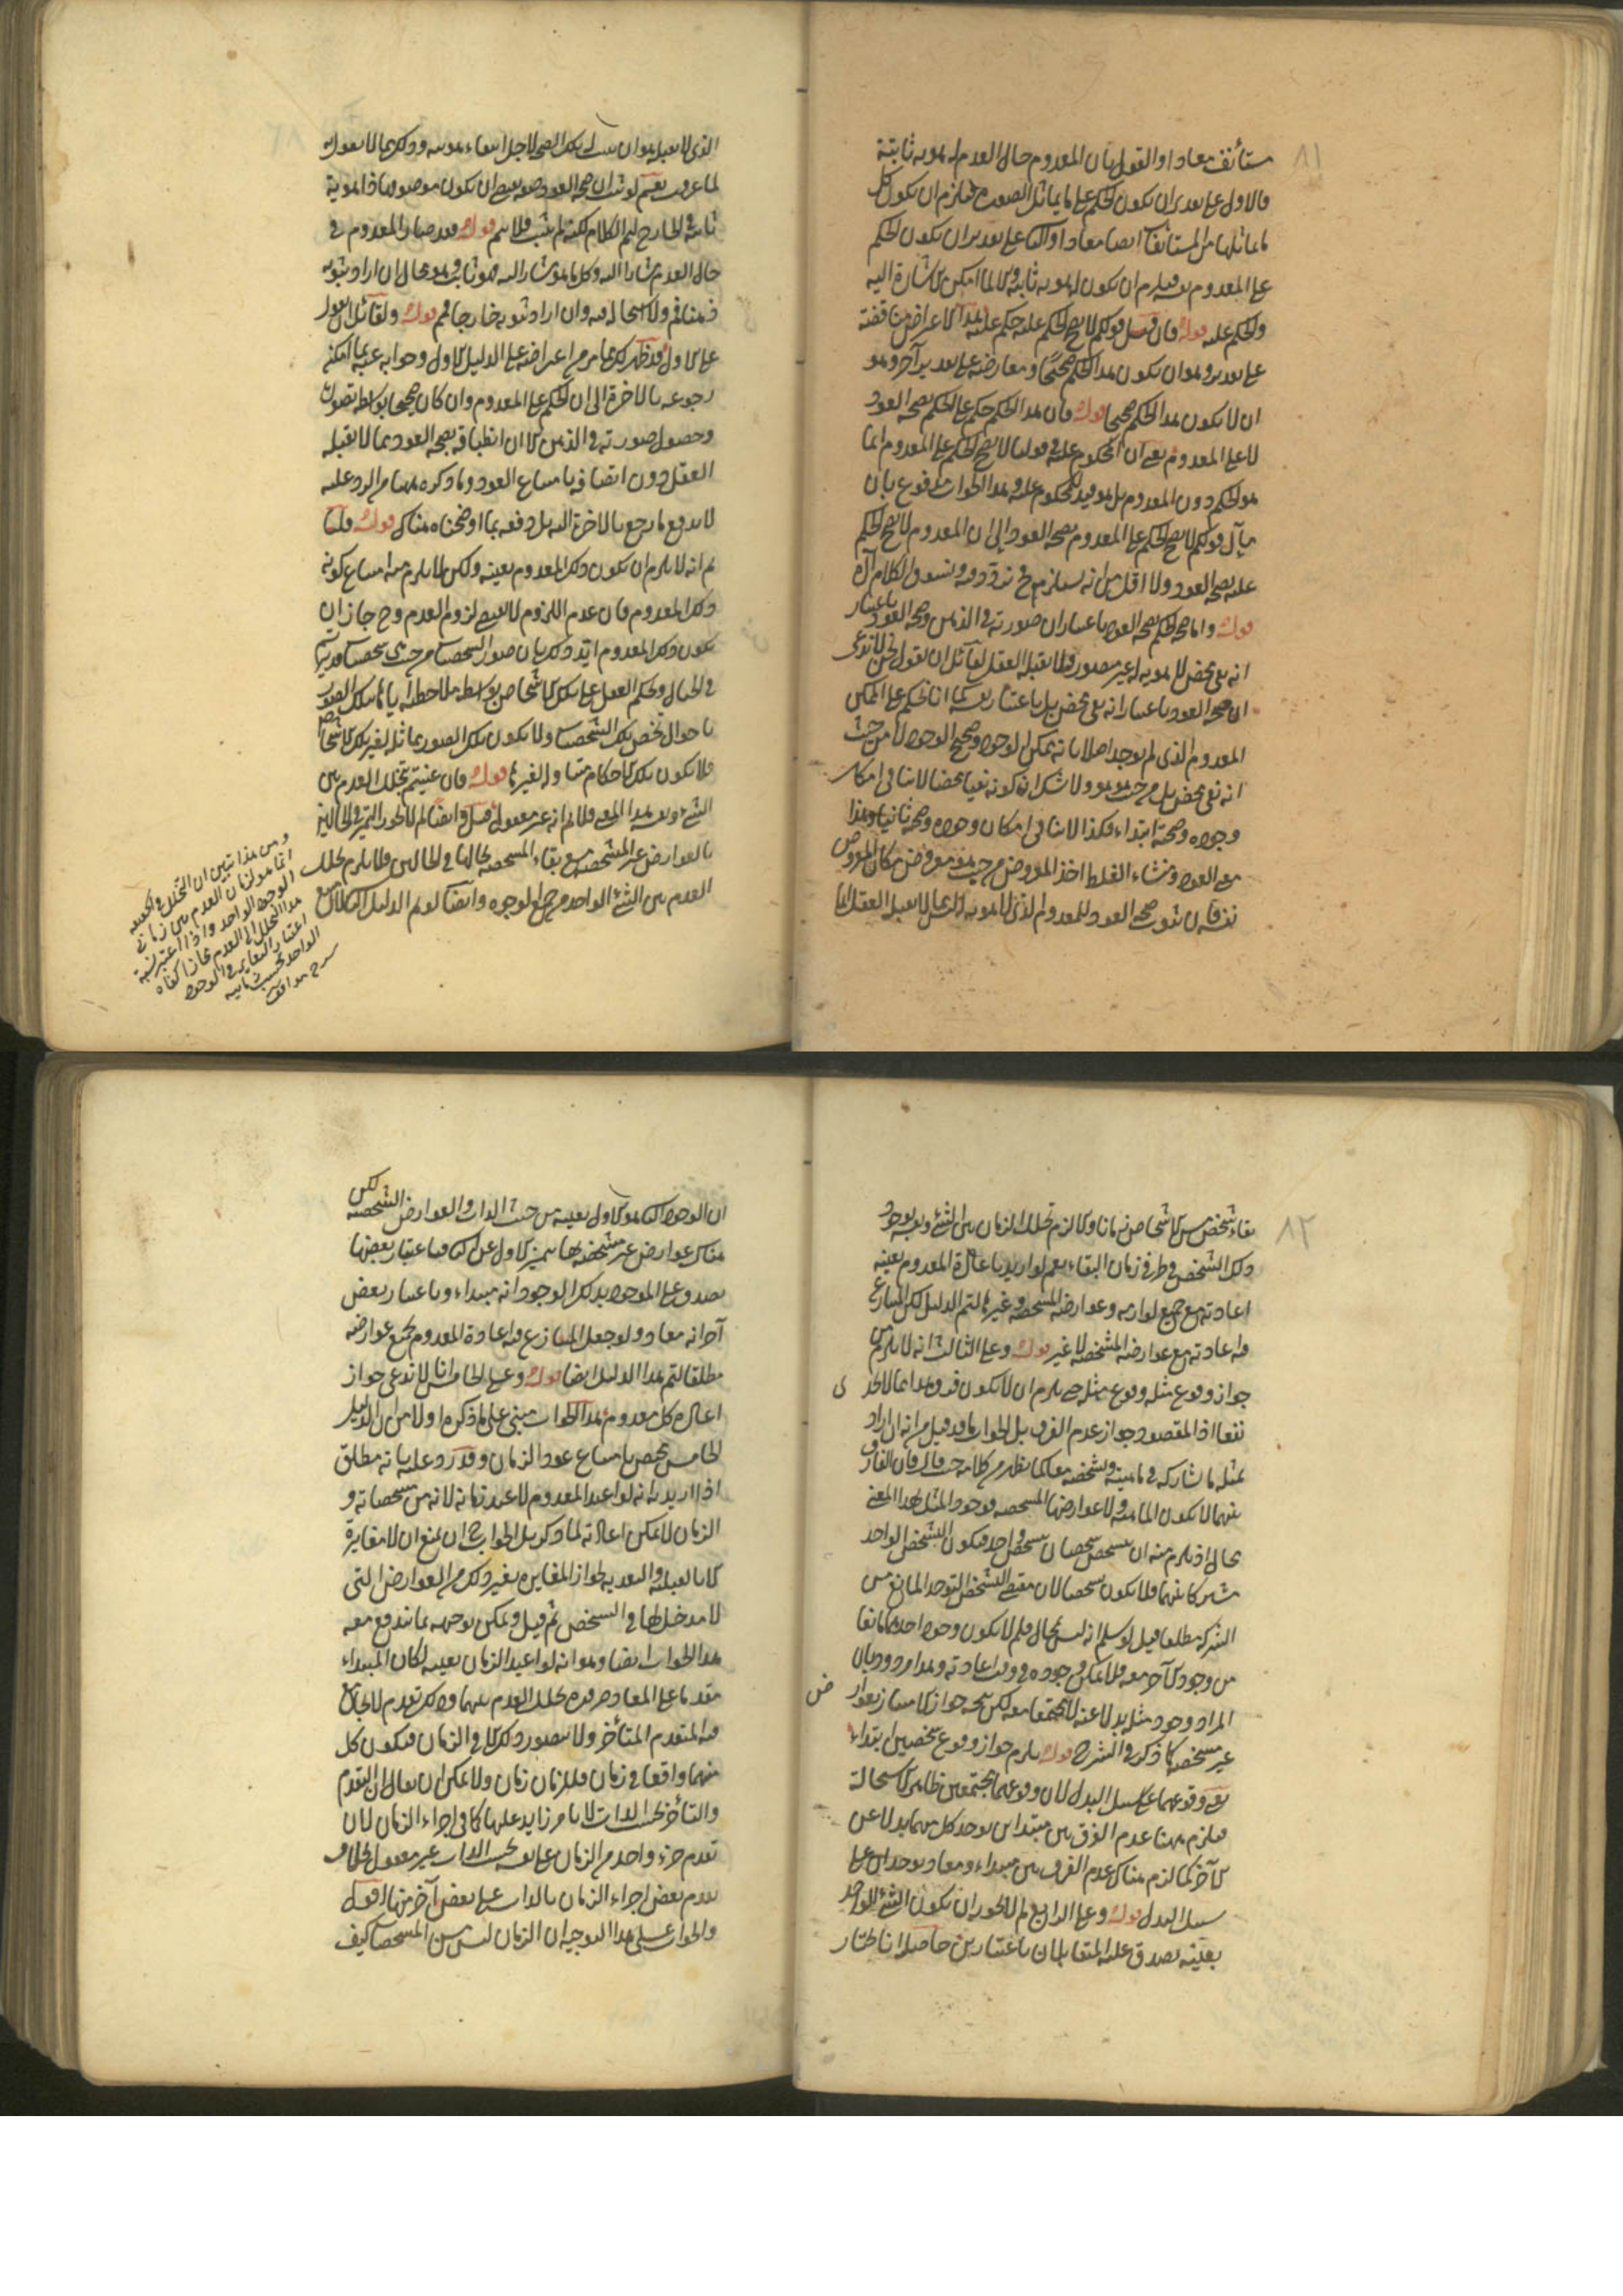 ٨١
مستأنف معادا والقول بأن المعدوم حال العدم له هوية ثابتة
فالاول على تقدير ان يكون الحكم على ما يماثل الصورة فيلزم ان يكون كل
ما يماثلها من المستأنفات ايضا معادا والثانى على تقدير ان يكون الحكم
على المعدوم نفسه فيلزم ان يكون له هوية ثابتة والا لما امكن الاشارة اليه
والحكم عليه قوله فان قيل قولكم لا يصح الحكم عليه حكم عليه هذا الاعتراض مناقضة
على تقدير وهو ان يكون هذا الحكم صحيحا ومعارضة على تقدير آخر وهو
ان لا يكون هذا الحكم صحيحا قوله فان هذا الحكم حكم على الحكم بصحة العود
لا على المعدوم يعنى ان المحكوم عليه فى قولنا لا يصح الحكم على المعدوم انما
هو الحكم دون المعدوم بل هو قيد للمحكوم عليه وهذا الجواب مدفوع بان
مآل قولكم لا يصح الحكم على المعدوم بصحة العود الى ان المعدوم لا يصح الحكم
عليه بصحة العود ولا اقل من انه يستلزمه فنردده ونسوق الكلام آه
قوله واما صحة الحكم بصحة العود باعتبار ان صورته فى الذهن وصحة العود باعتبار
انه نفى محض لا هوية له غير متصور فلا يقبله العقل لقائل ان يقول نحن لا ندعى
ان صحة العود باعتبار انه نفى محض بل باعتبار نفسه كما انا نحكم على الممكن
المعدوم الذى لم يوجد اصلا بانه ممكن الوجود وصحيح الوجود لا من حيث
انه نفى محض بل من حيث هو هو ولا شك ان كونه نفيا محضا لا ينافى امكان
وجوده وصحته ابتداء فكذا لا ينافى امكان وجوده وصحته ثانيا وهذا
معنى العود ومنشاء الغلط اخذ المعروض من حيث هو معروض مكان المعروض
نفسه فان ثبوت صحة العود للمعدوم الذى لا هوية له مما لا يقبل العقل انما
الذى لا يقبله هو ان يثبت له تلك الصحة لاجل انتفاء هويته وذلك مما لا نقول به
لما عرفت نعم لو ثبت ان صحة العود صفة يقتضى ان يكون موصوفها ذا هوية
ثابتة فى الخارج لتم الكلام لكنه لم يثبت فلا يتم قوله فقد صار المعدوم فى
حال العدم مشارا اليه وكل ما هو مشار اليه فهو ثابت وهو محال ان اراد ثبوته
ذهنا فم ولا استحالة فيه وان اراد ثبوته خارجا فمم قوله ولقائل ان يقول
على الاول قد ظهر لك مما مر من اعتراضه على الدليل الاول وجوابه عنه بما امكنه
رجوعه بالاخرة الى ان الحكم على المعدوم وان كان صحيحا بواسطة تصوره
وحصول صورته فى الذهن الا ان اتصافه بصحة العود مما لا يقبله
العقل دون اتصافه بامتناع العود وما ذكره ههنا من الرد عليه
لا يدفع ما رجع بالاخرة اليه بل دفعه بما اوضحناه هناك قوله قلنا
م انه لا يلزم ان يكون ذلك المعدوم بعينه ولكن لا يلزم منه امتناع كونه
ذلك المعدوم فان عدم اللزوم لا يقتضى لزوم العدم وح جاز ان
يكون ذلك المعدوم
فى الخيال وحكم العقل على تلك الاشخاص بواسطة ملاحظة اياها بتلك الصور
باحوال تخص تلك الشخصيات ولا يكون تلك الصور مماثلة لغير تلك الاشخاص
فلا يكون تلك الاحكام متناولة لغيرها قوله فان عنيتم بتخلل العدم بين
الشىء ونفسه هذا المعنى فلا نم انه غير معقول قيل وايضا لم لا يجوز التميز فى الحالين
بالعوارض غير المشخصة مع بقاء المشخصة بحالها فى الحالين فلا يلزم تخلل
العدم بين الشىء الواحد من جميع الوجوه وايضا لو تم الدليل لامتنع
ومن هذا تبين ان التخلل فى الحقيقة
انما هو لزمان العدم بين زمانى
الوجود الواحد واذا اعتبر نسبة
هذا التخلل الى العدم مجازا كفاه
اعتبار التغاير فى الوجود
الواحد بحسب زمانيه
شرح مواقف
٨٢
بقاء شخص من الاشخاص زمانا والا لزم تخلل الزمان بين الشىء ونفسه لوجود
ذلك الشخص فى طرفى زمان البقاء نعم لو اريد باعادة المعدوم بعينه
اعادته مع جميع لوازمه وعوارضه المشخصة وغيرها لتم الدليل لكن المتنازع
فيه اعادته مع عوارضه المشخصة لا غير قوله وعلى الثالث انه لا يلزم من
جواز وقوع مثله وقوع مثله حتى يلزم ان لا يكون فرق وهذا مما لا يجدى
نفعا اذ المقصود جواز عدم الفرق بل الجواب ما قد قيل من انه ان اراد
بمثله ما شاركه فى ماهيته وتشخصه معا كما يظهر من كلامه حيث قال فان الفارق
بينهما لا يكون الماهية ولا عوارضها المشخصة فوجود المثل بهذا المعنى
محال اذ يلزم منه ان يتشخص شخصان بتشخص واحد فيكون التشخص الواحد
مشتركا بينهما فلا يكون تشخصا لان مقتضى التشخص التوحد المانع من
الشركة مطلقا قيل لو سلم انه ليس بمحال فلم لا يكون وجود احدهما مانعا
من وجود الآخر معه فلا يمكن وجوده فى وقت اعادته وهذا مردود بان
المراد وجود مثله بدلا عنه لا مجتمعا معه لكن يتجه جواز الامتياز بعوارض
غير مشخصة كما ذكر فى الشرح قوله يلزم جواز وقوع شخصين ابتداء
يعنى وقوعهما على سبيل البدل لان وقوعهما مجتمعين ظاهر الاستحالة
فيلزم ههنا عدم الفرق بين مبتدائين يوجد كل منهما بدلا عن
الآخر كما لزم هناك عدم الفرق بين مبتداء ومعاد يوجدان على
سبيل البدل قوله وعلى الرابع لم لا يجوز ان يكون الشىء الواحد
بعينه يصدق عليه المتقابلان باعتبارين حاصله انا نختار
ان الوجود الثانى هو الاول بعينه من حيث الذات والعوارض المشخصة لكن
هناك عوارض غير مشخصة بها يتميز الاول عن الثانى فباعتبار بعضها
يصدق على الموجود بذلك الوجود انه مبتداء وباعتبار بعض
آخر انه معاد ولو جعل المتنازع فيه اعادة المعدوم بجميع عوارضه
مطلقا لتم هذا الدليل ايضا قوله وعلى الخامس انا لا ندعى جواز
اعادة كل معدوم هذا الجواب مبنى على ما ذكره اولا من ان الدليل
الخامس مختص بامتناع عود الزمان وقد رد عليه بانه مطلق
اذ اريد به انه لو اعيد المعدوم لاعيد زمانه لانه من مشخصاته و
الزمان لا يمكن اعادته لما ذكر بل الجواب ح ان يمنع ان لا مغايرة
الا بالقبلية والبعدية لجواز المغايرة بغير ذلك من العوارض التى
لا مدخل لها فى التشخص ثم قيل ويمكن توجيهه بما يندفع معه
هذا الجواب ايضا وهو انه لو اعيد الزمان بعينه لكان المبتداء
مقدما على المعاد ضرورة تخلل العدم بينهما وذلك تقدم لا يجامع
فيه المتقدم المتأخر ولا يتصور ذلك الا فى الزمان فيكون كل
منهما واقعا فى زمان فللزمان زمان ولا يمكن ان يقال ان التقدم
والتأخر بحسب الذات لا بامر زايد عليها كما فى اجزاء الزمان لان
تقدم جزء واحد من الزمان على نفسه بحسب الذات غير معقول بخلاف
تقدم بعض اجزاء الزمان بالذات على بعض آخر منها اقول
والجواب على هذا التوجيه ان الزمان ليس من المشخصات كيف